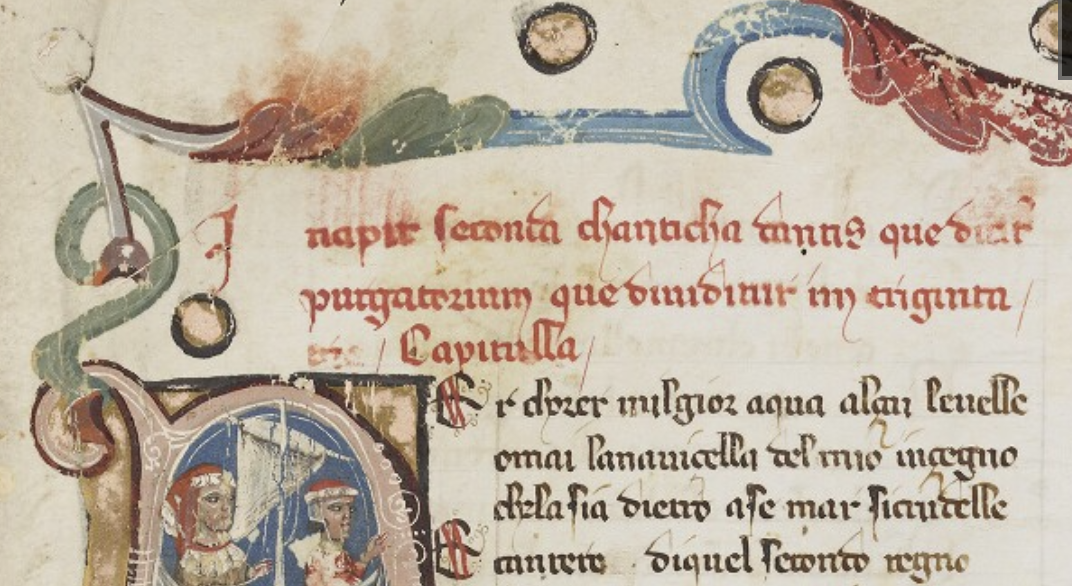 Incipit seconda chanticha dantis que dicit̄
purgatorium que diuiditur in triginta /
/ Capitulla /
Er chorer milgior aqua alçan leuelle
omai lanauicella del mio inçegno
chelasia dietro ase mar sicrudelle
E cantero diquel secondo regno